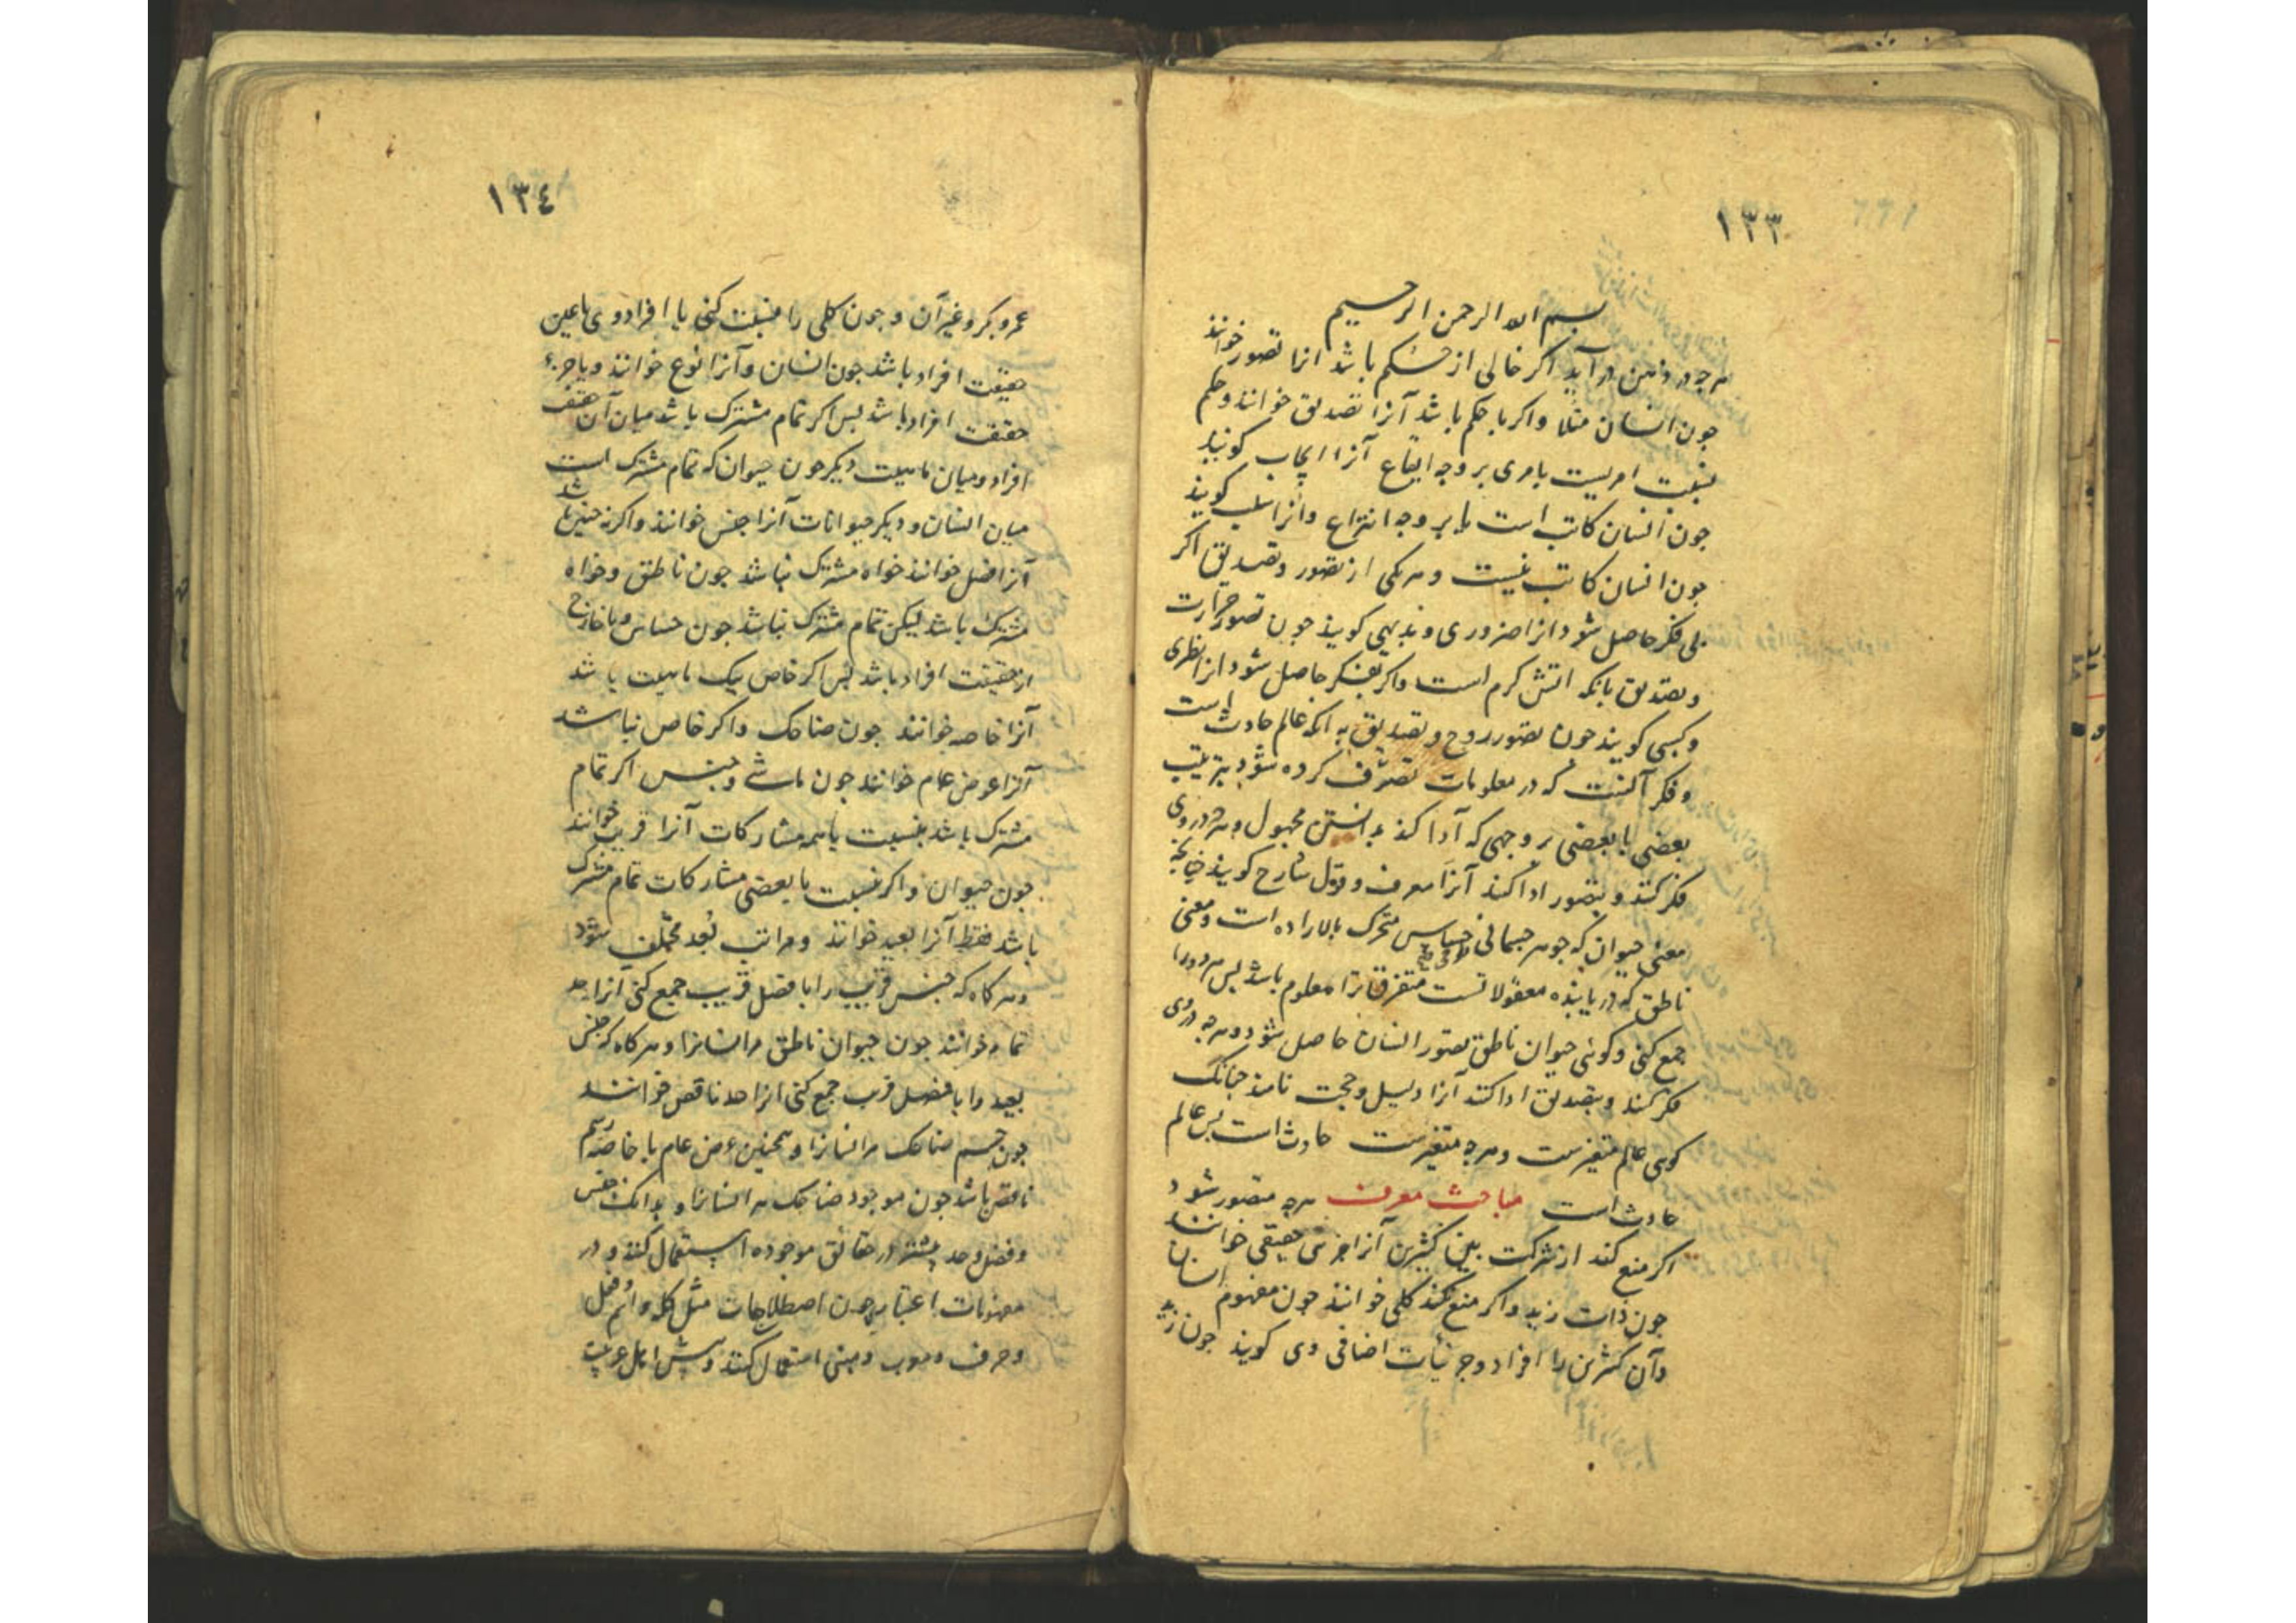 ۱۳۳
بسم الله الرحمن الرحیم
هرچه در ذهن در آید اکر خالی از حکم باشد انرا تصور خوانند
جون انسان مثلا واکر با حکم باشد آنرا تصدیق خوانند وحکم
نسبت امریست بامری بر وجه ایقاع آنرا ایجاب کویند
جون انسان کاتب است یا بر وجه انتزاع وانرا سلب کویند
جون انسان کاتب نیست وهریکی از تصور وتصدیق اکر
بی فکر حاصل شود انرا ضروری وبدیهی کویند جون تصور حرارت
وتصدیق بانکه اتش کرم است واکر بفکر حاصل شود انرا نظری
وکسبی کویند جون تصور روح وتصدیق به انکه عالم حادث است
وفکر آنست که در معلومات تصرف کرده شود بترتیب
بعضی با بعضی بر وجهی که آدا کند بدانستن مجهول وهرچه در وی
فکر کنند وبتصور ادا کند آنرا معرف وقول شارح کویند چنانچه
معنی حیوان که جوهر جسمانی حساس متحرک بالاراده است ومعنی
ناطق که دریابنده معقولاتست متفرق ترا معلوم باشد پس هر دورا
جمع کنی وکوئی حیوان ناطق تصور انسان حاصل شود وهرچه در وی
فکر کنند وبتصدیق ادا کند آنرا دلیل وحجت نامند جنانک
کوی عالم متغیرست وهرچه متغیرست حادث است پس عالم
حادث است مباحث معرف هرچه متصور شود
اکر منع کند از شرکت بین کثیرین آنرا جزئی حقیقی خوانند
جون ذات زید واکر منع نکند کلی خوانند جون مفهوم انسان
وآن کثیرین را افراد وجزئیات اضافی وی کویند جون زید
۱۳٤
عمرو بکر وغیر آن وجون کلی را نسبت کنی با افراد وی یا عین
حقیقت افراد باشد جون انسان وآنرا نوع خوانند ویا جزء
حقیقت افراد باشد پس اکر تمام مشترک باشد میان آن
افراد ومیان ماهیت دیکر جون حیوان که تمام مشترک است
میان انسان ودیکر حیوانات آنرا جنس خوانند واکر نه چنین باشد
آنرا فصل خوانند خواه مشترک نباشد جون ناطق وخواه
مشترک باشد لیکن تمام مشترک نباشد جون حساس ویا خارج
از حقیقت افراد باشد پس اکر خاص بیک ماهیت باشد
آنرا خاصه خوانند جون ضاحک واکر خاص نباشد
آنرا عرض عام خوانند جون ماشی وجنس اکر تمام
مشترک باشد بنسبت با همه مشارکات آنرا قریب خوانند
جون حیوان واکر نسبت با بعضی مشارکات تمام مشترک
باشد فقط آنرا بعید خوانند ومراتب بُعد مختلف شود
وهرکاه که جنس قریب را با فصل قریب جمع کنی آنرا حد
تمام خوانند جون حیوان ناطق مر انسانرا وهرکاه که جنس
بعید را با فصل قریب جمع کنی انرا حد ناقص خوانند
جون جسم ضاحک مر انسانرا وهمچنین عرض عام با خاصه رسم
ناقص باشد جون موجود ضاحک مر انسانرا وبدانک جنس
وفصل وحد بیشتر در حقائق موجوده استعمال کنند ودر
مفهومات اعتباریه جون اصطلاحات مثل کلمه واسم وفعل
وحرف ومعرب ومبنی استعمال کنند وپیش اهل عربیت